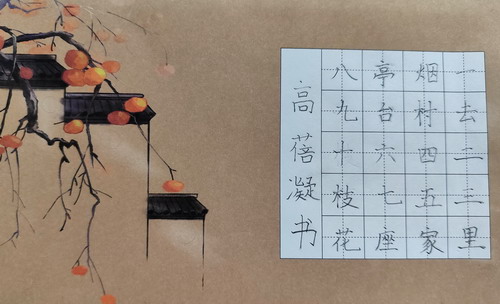 一去二三里
烟村四五家
亭台六七座
八九十枝花
高蓓凝书